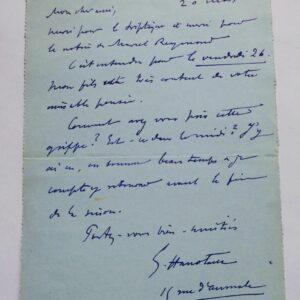 20 mars
Mon cher ami,
merci pour le triptique et merci pour
la notice de Marcel Reymond
C'est entendu pour le vendredi 26.
Mon fils est très content de votre
aimable pensée.
Comment avez vous pris cette
grippe? Est-ce dans le midi? J'y
ai eu, en somme beau temps et je
compte y retourner avant la fin
de la saison.
Portez-vous bien. amitiés
G. Hanotaux
15 rue d'aumale